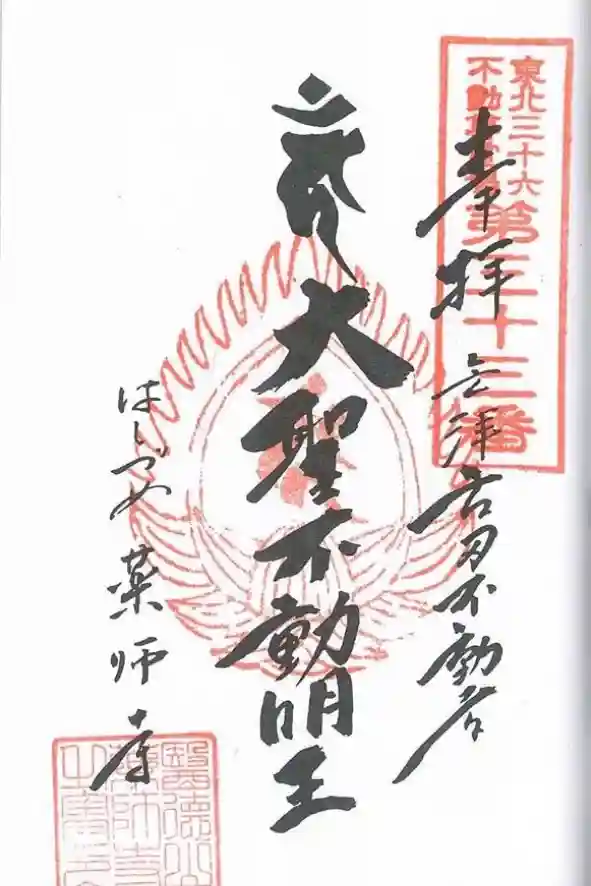 東北三十六
不動尊霊場
第三十三番
奉拝
不動尊
大聖不動明王
はしづめ 薬師寺